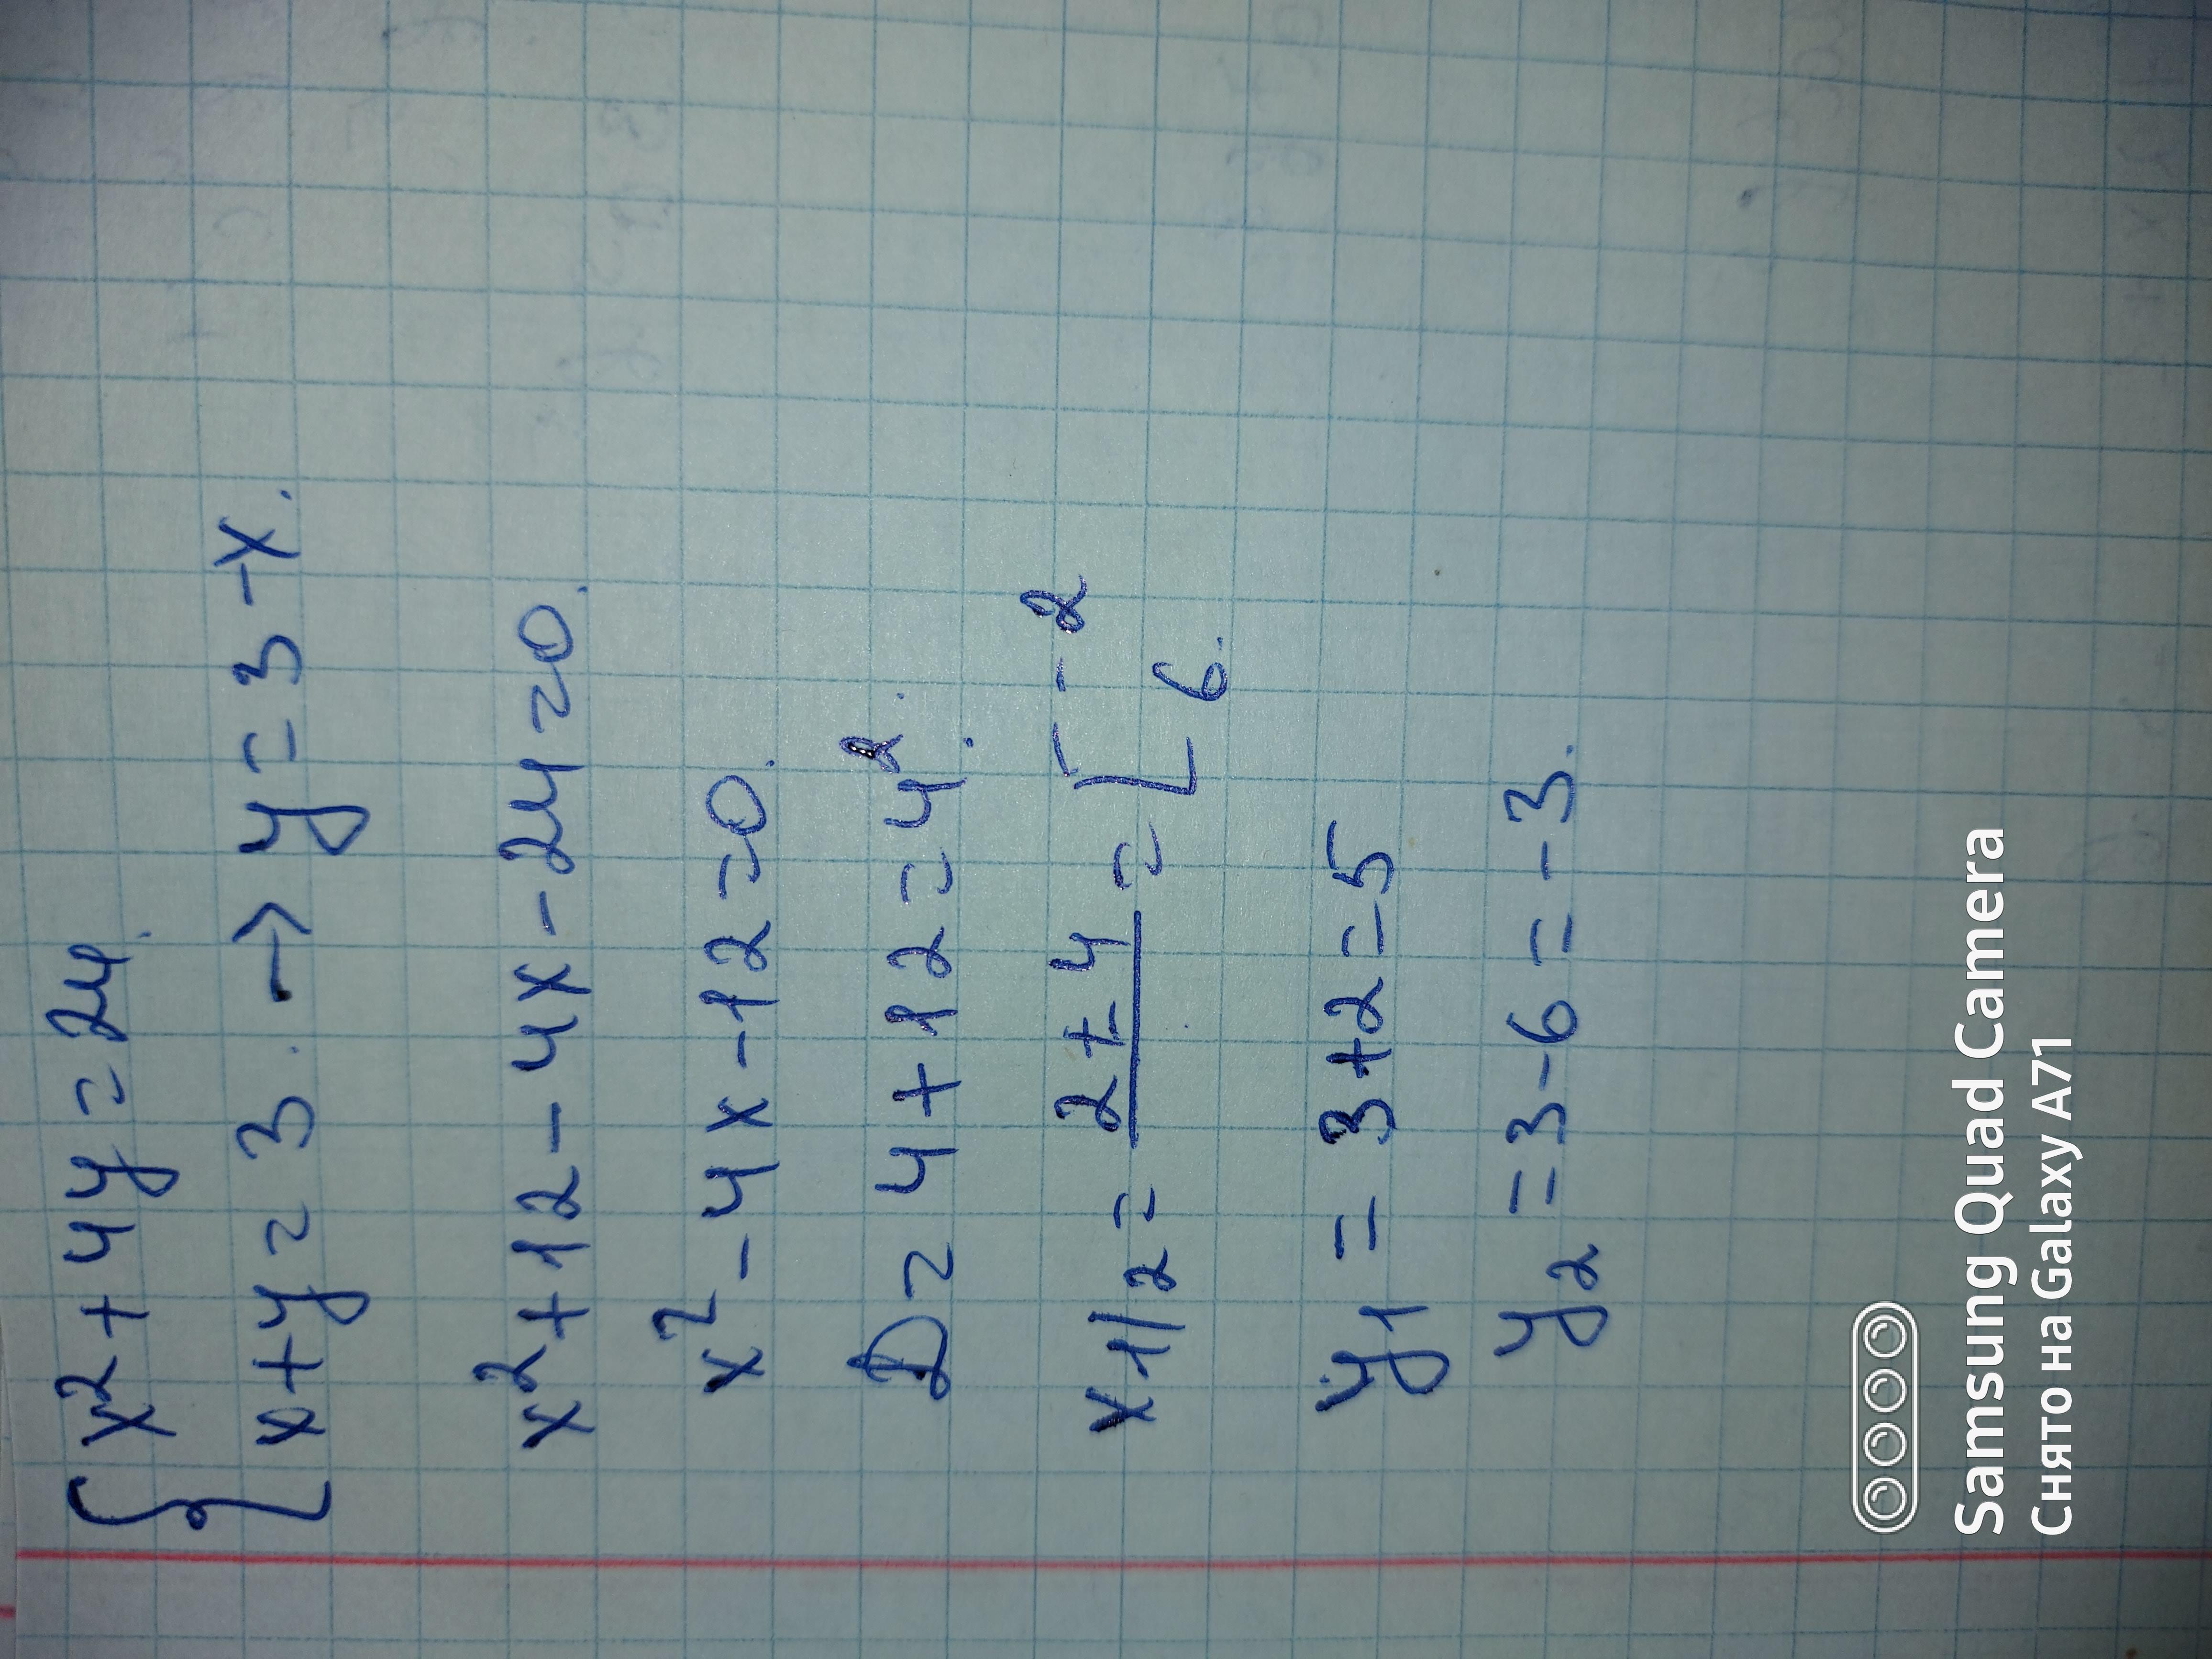 { x² + 4y = 24.
x + y = 3. → y = 3 - x.
x² + 12 - 4x - 24 = 0.
x² - 4x - 12 = 0.
D = 4 + 12 = 4².
x1/2 = 2 ± 4 = [ -2
6.
y1 = 3 + 2 = 5
y2 = 3 - 6 = -3.
Samsung Quad Camera
Снято на Galaxy A71